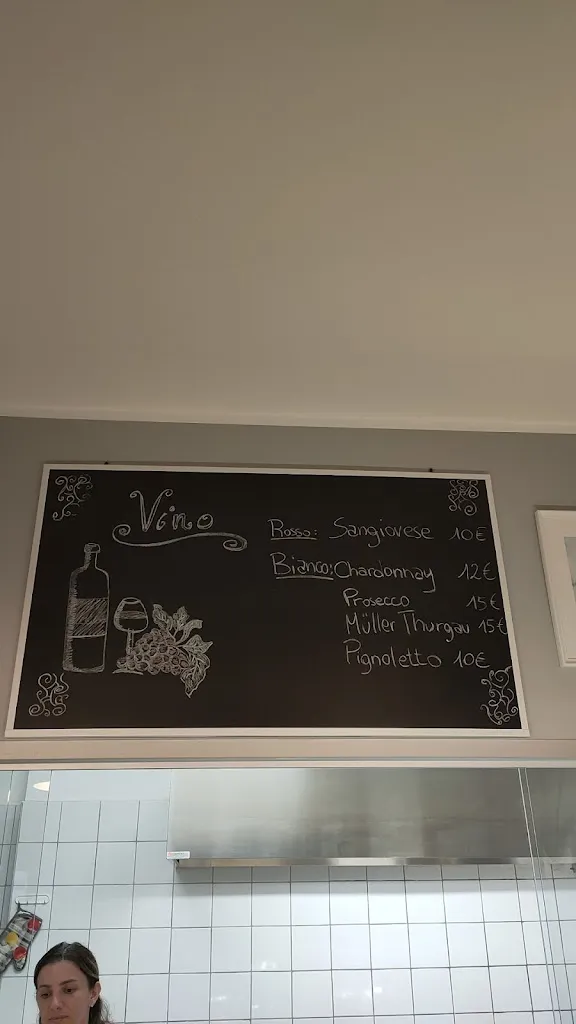 Vino
Rosso: Sangiovese 10€
Bianco: Chardonnay 12€
Prosecco 15€
Müller Thurgau 15€
Pignoletto 10€